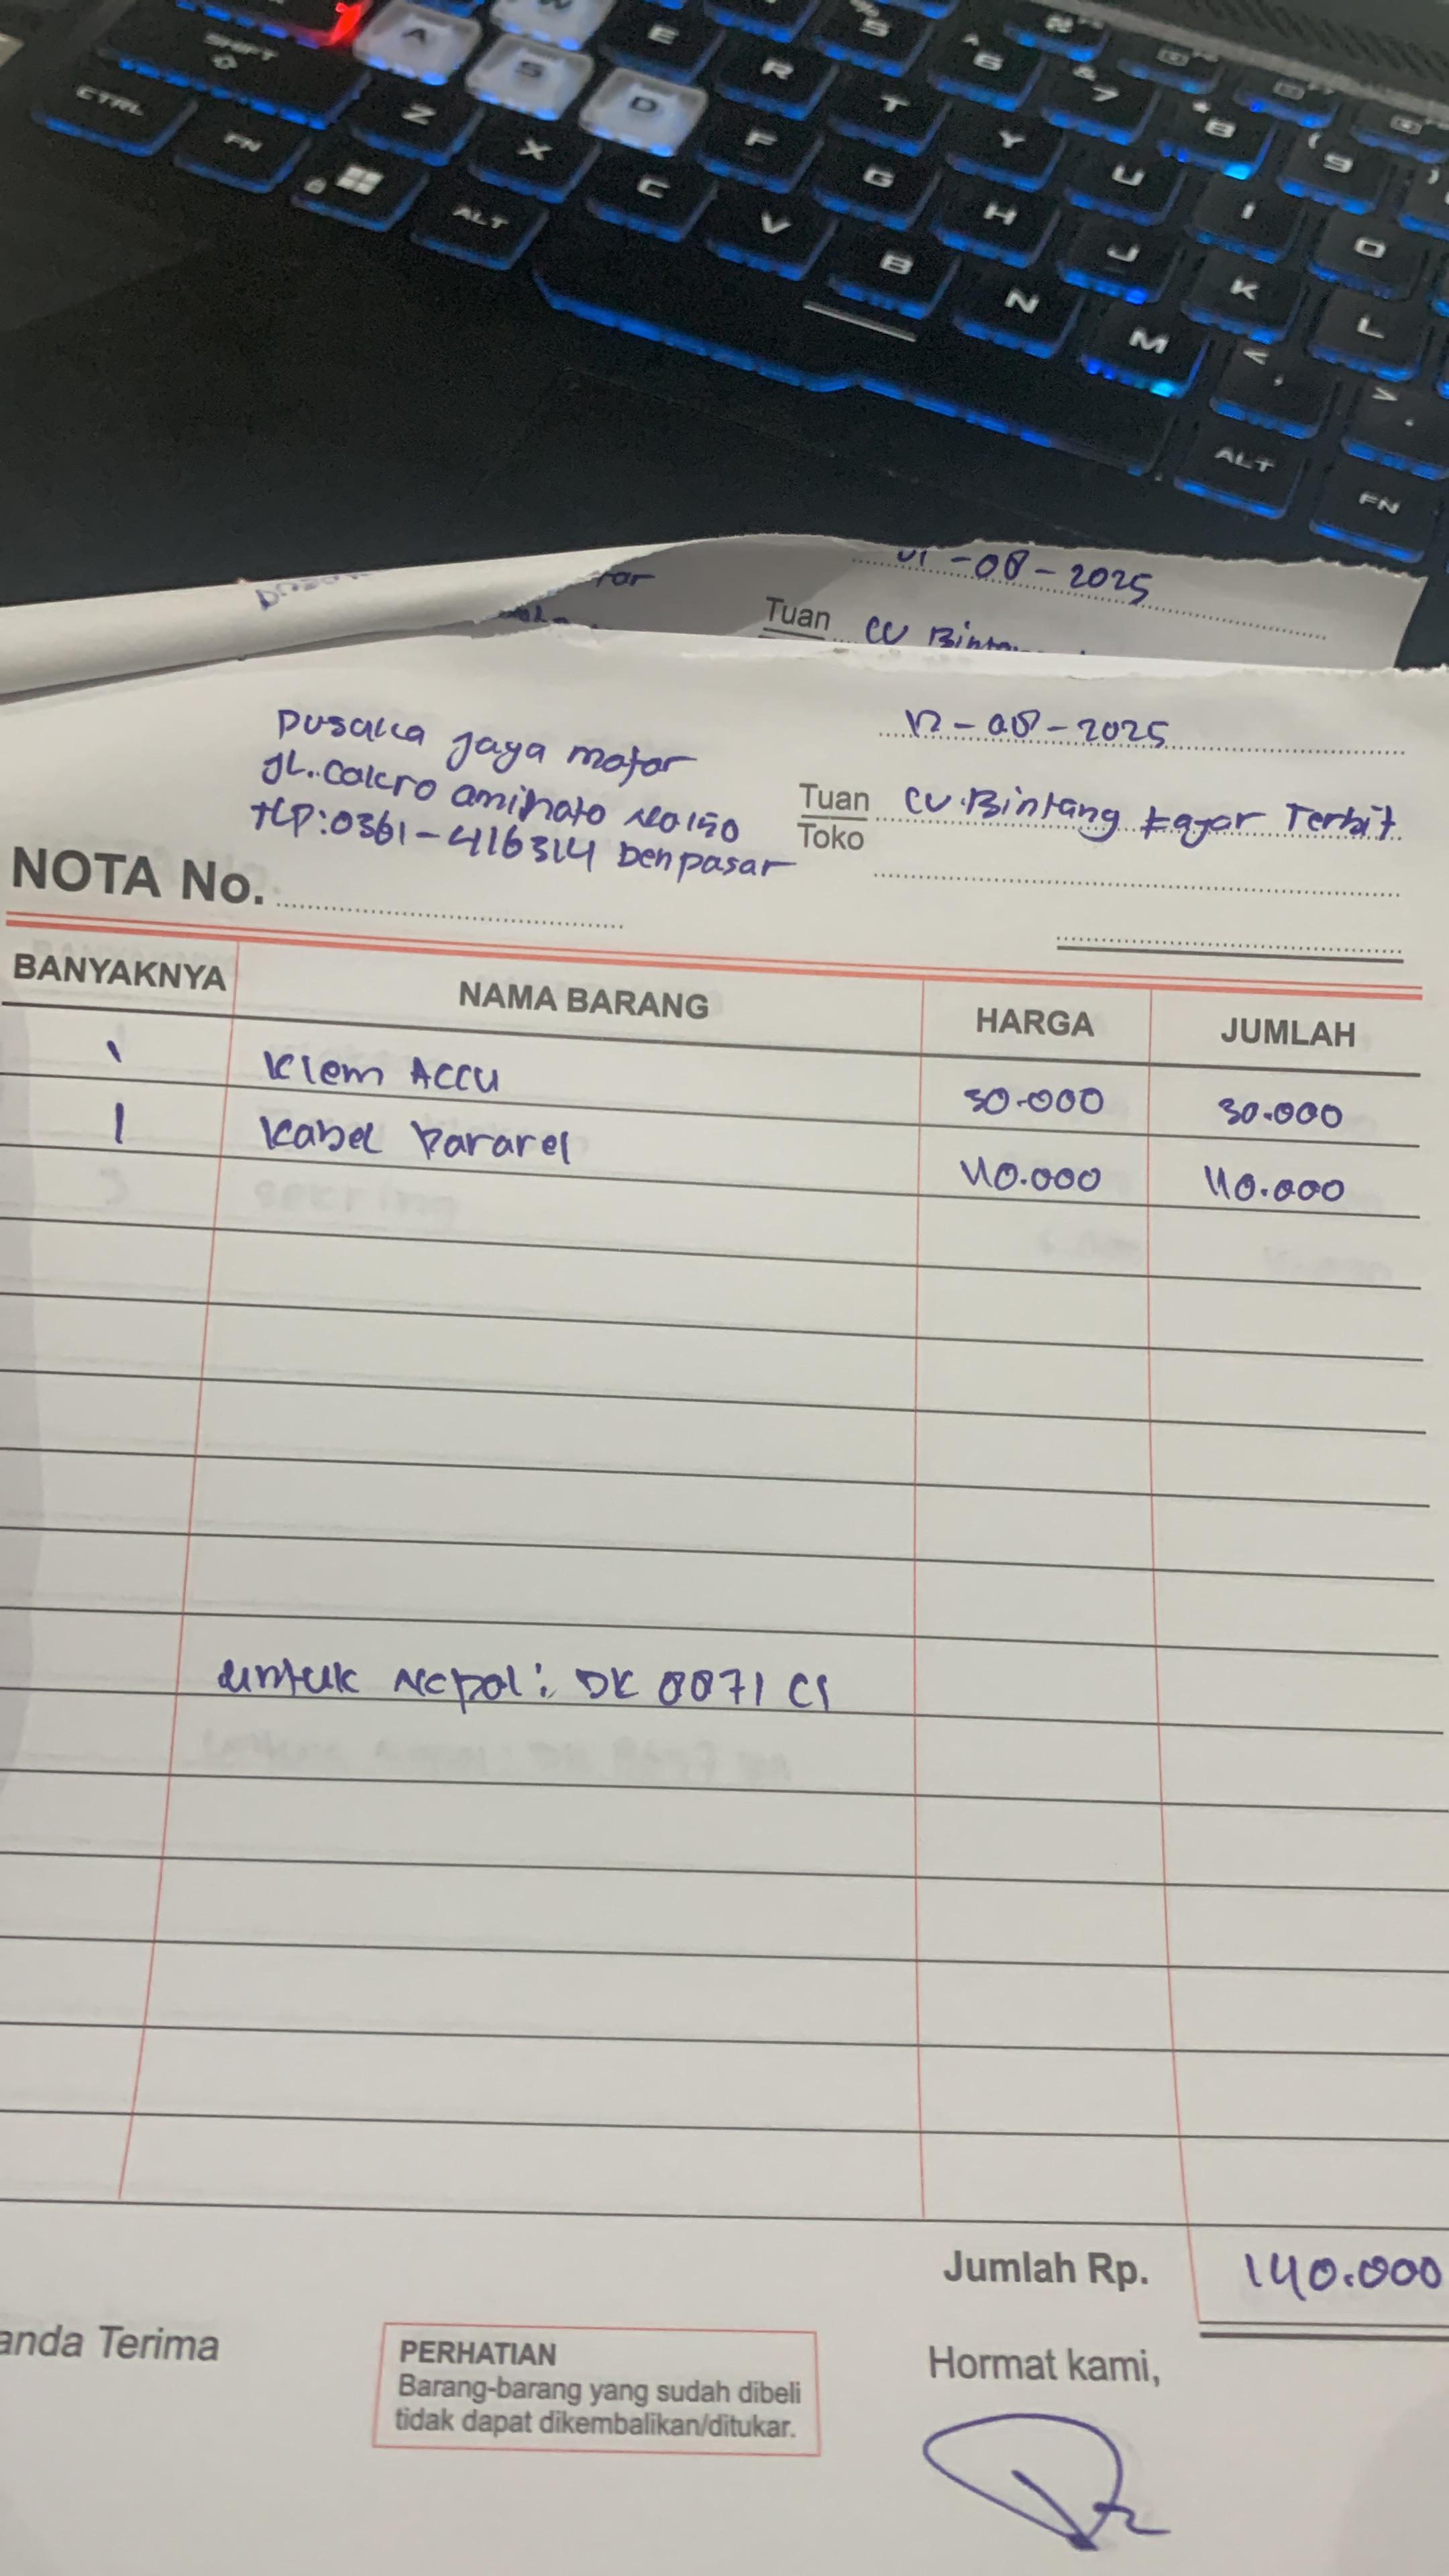 SHIFT
A
W
E
S
D
R
5
6
7
8
9
CTRL
FN
Z
X
F
T
Y
U
I
O
ALT
C
G
H
J
K
L
V
B
N
M
<
,
>
.
ALT
FN
-08-2025
Tuan CV Bintang
Pusaka jaya motor
JL. Cokro aminoto No 150
TLP: 0361-416314 Denpasar
12-08-2025
Tuan CV. Bintang Fajar Terbit
Toko
NOTA No.
BANYAKNYA NAMA BARANG HARGA JUMLAH
1 Klem ACCU 30.000 30.000
1 Kabel Pararel 110.000 110.000
untuk Nopol: DK 8071 CI
Jumlah Rp. 140.000
anda Terima
PERHATIAN
Barang-barang yang sudah dibeli
tidak dapat dikembalikan/ditukar.
Hormat kami,